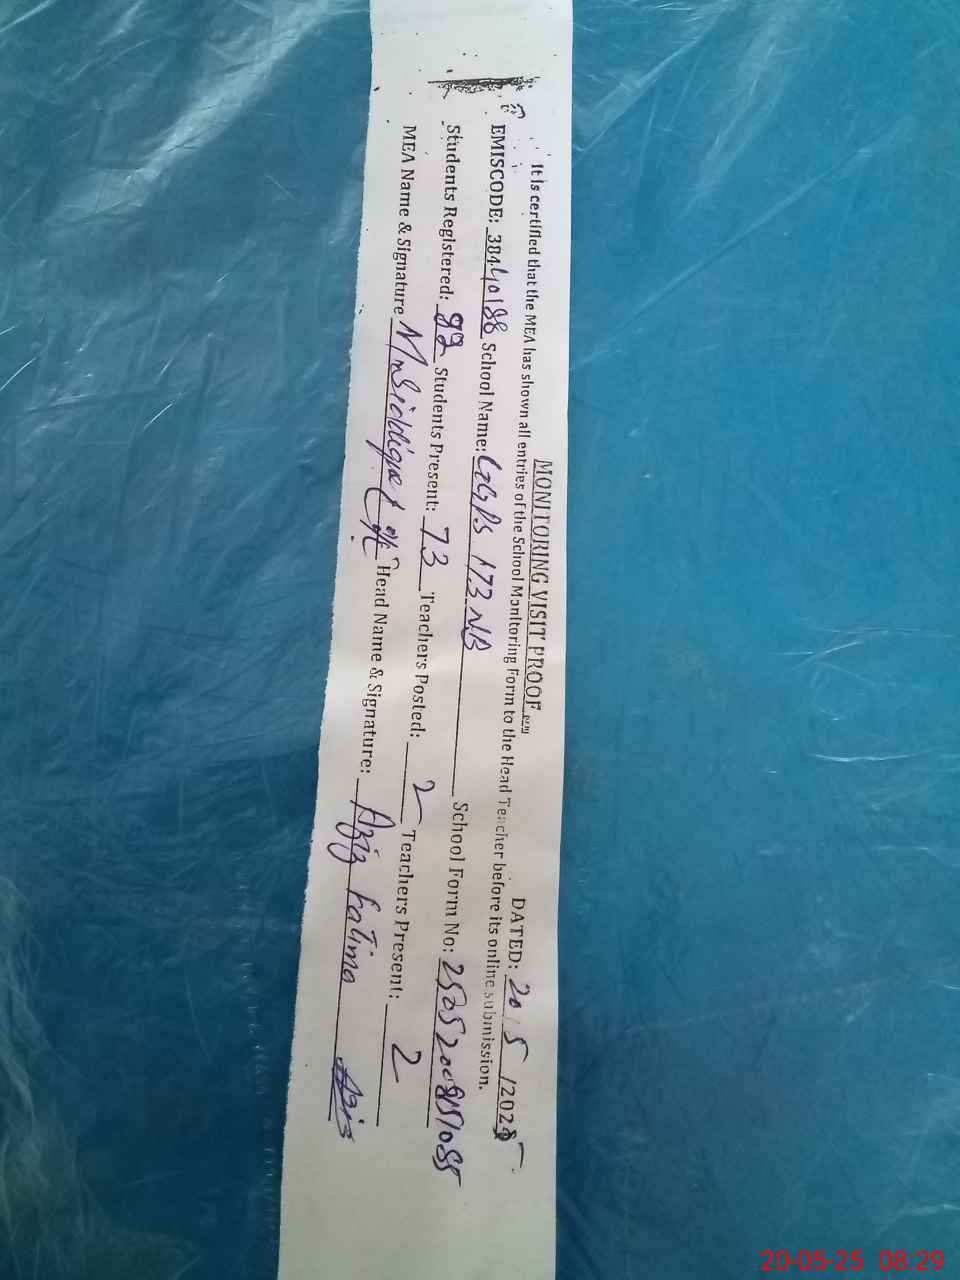 MONITORING VISIT PROOF
DATED: 20/5/2025
It is certified that the MEA has shown all entries of the School Monitoring Form to the Head Teacher before its online submission.
EMISCODE: 38440188 School Name: GGPS 173 NB School Form No:
Students Registered: 92 Students Present: 73 Teachers Posted: 2 Teachers Present: 2
MEA Name & Signature Head Name & Signature: Aziz Fatima Aziz
20-05-25 08:29